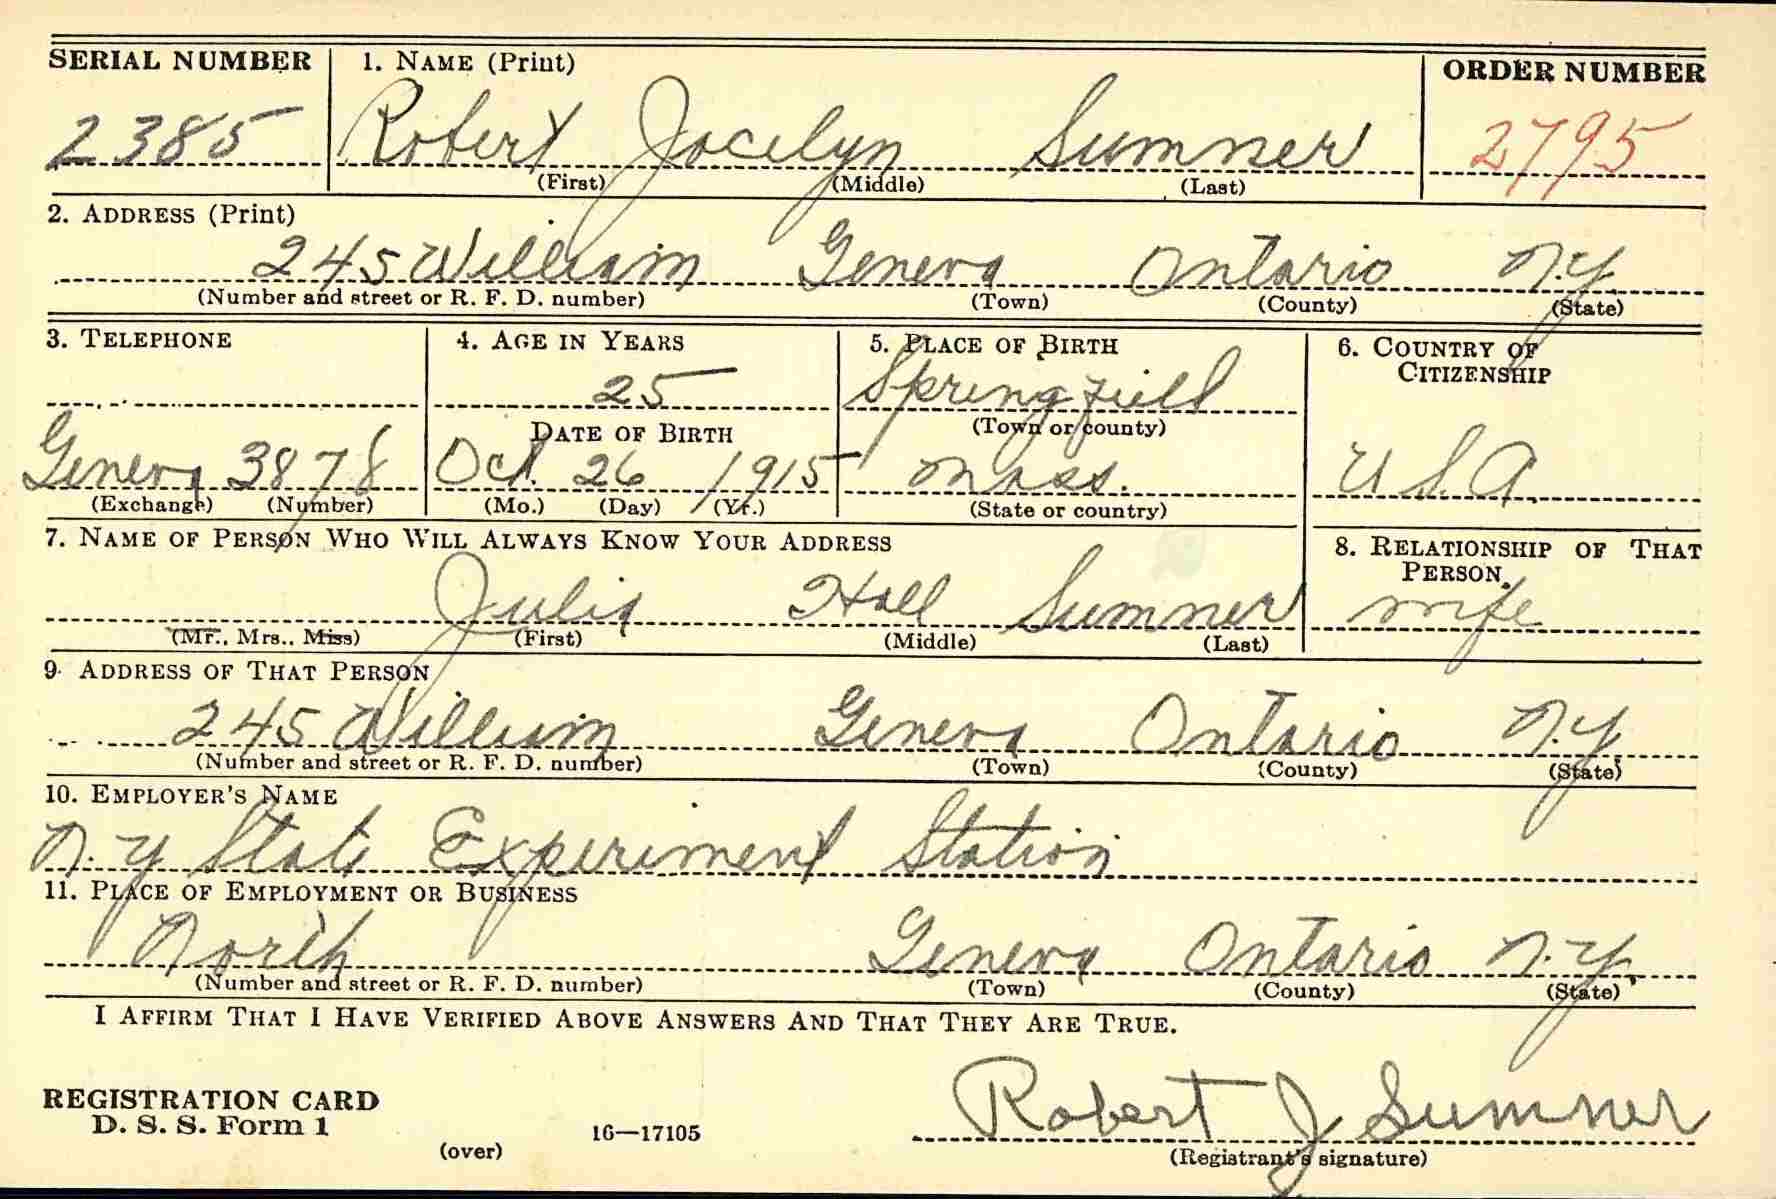 SERIAL NUMBER 1. NAME (Print) ORDER NUMBER
2385 Robert Jocelyn Sumner 2795
(First) (Middle) (Last)
2. ADDRESS (Print)
245 William Geneva Ontario N.Y.
(Number and street or R. F. D. number) (Town) (County) (State)
3. TELEPHONE 4. AGE IN YEARS 5. PLACE OF BIRTH 6. COUNTRY OF CITIZENSHIP
25 Springfield
DATE OF BIRTH (Town or county)
Geneva 3878 Oct. 26 1915 Mass. U.S.A.
(Exchange) (Number) (Mo.) (Day) (Yr.) (State or country)
7. NAME OF PERSON WHO WILL ALWAYS KNOW YOUR ADDRESS 8. RELATIONSHIP OF THAT PERSON
Julia Hall Sumner wife
(Mr., Mrs., Miss) (First) (Middle) (Last)
9. ADDRESS OF THAT PERSON
245 William Geneva Ontario N.Y.
(Number and street or R. F. D. number) (Town) (County) (State)
10. EMPLOYER'S NAME
N.Y State Experiment Station
11. PLACE OF EMPLOYMENT OR BUSINESS
North Geneva Ontario N.Y.
(Number and street or R. F. D. number) (Town) (County) (State)
I AFFIRM THAT I HAVE VERIFIED ABOVE ANSWERS AND THAT THEY ARE TRUE.
REGISTRATION CARD Robert J Sumner
D. S. S. Form 1 16—17105
(over) (Registrant's signature)